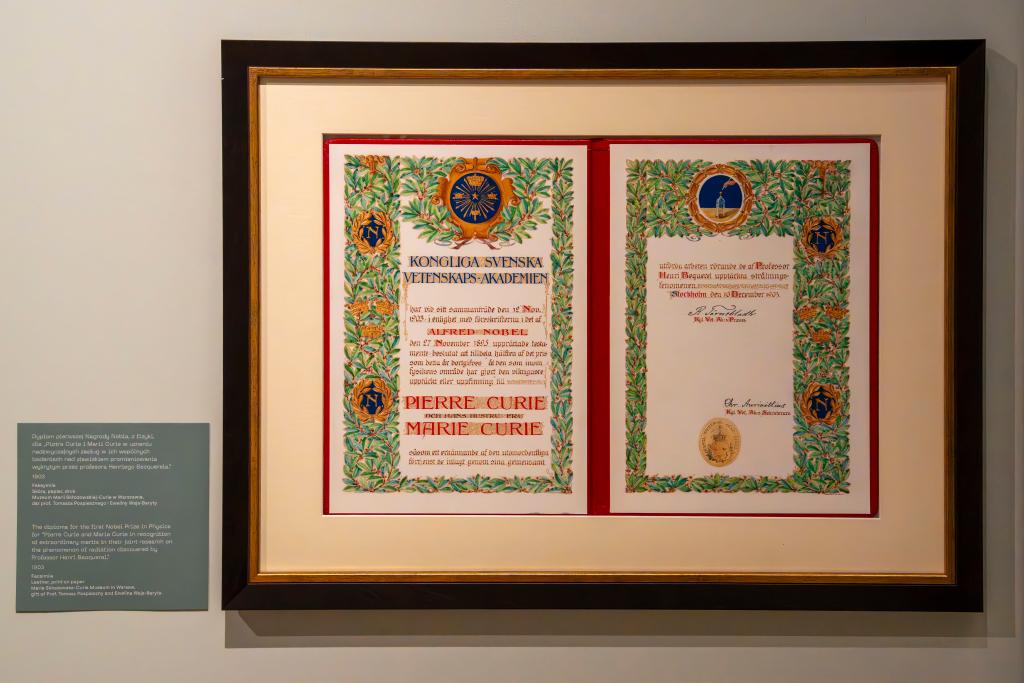 Dyplom pierwszej Nagrody Nobla, z fizyki,
dla „Pierre Curie i Marii Curie w uznaniu
nadzwyczajnych zasług w ich wspólnych
badaniach nad zjawiskiem promieniowania
wykrytym przez profesora Henriego Becquerela."
1903
Faksymile
Skóra, papier, druk
Muzeum Marii Skłodowskiej-Curie w Warszawie,
dar prof. Tomasza Pospiesznego i Eweliny Wajs-Baryły
The diploma for the first Nobel Prize in Physics
for "Pierre Curie and Marie Curie in recognition
of extraordinary merits in their joint research on
the phenomenon of radiation discovered by
Professor Henri Becquerel."
1903
Facsimile
Leather, print on paper
Maria Skłodowska-Curie Museum in Warsaw,
gift of Prof. Tomasz Pospieszny and Ewelina Wajs-Baryła
KONGLIGA SVENSKA
VETENSKAPS-AKADEMIEN
har vid sitt sammanträde den 12 Nov.
1903 i enlighet med föreskrifterna i det af
ALFRED NOBEL
den 27 November 1895 upprättade testa-
mente beslutat att tilldela hälften af det pris
som detta år bortgifves åt den som inom
fysikens område har gjort den viktigaste
upptäckt eller uppfinning till
PIERRE CURIE
OCH HANS HUSTRU FRU
MARIE CURIE
såsom ett erkännande af den utomordentliga
förtjenst de inlagt genom sina gemensamt
N
N
utförda arbeten rörande de af Professor
Henri Becquerel upptäckta strålnings-
fenomenen.
Stockholm den 10 December 1903.
Kgl. Vet. Ak:s Præses
Kgl. Vet. Ak:s Sekreterare
N
N